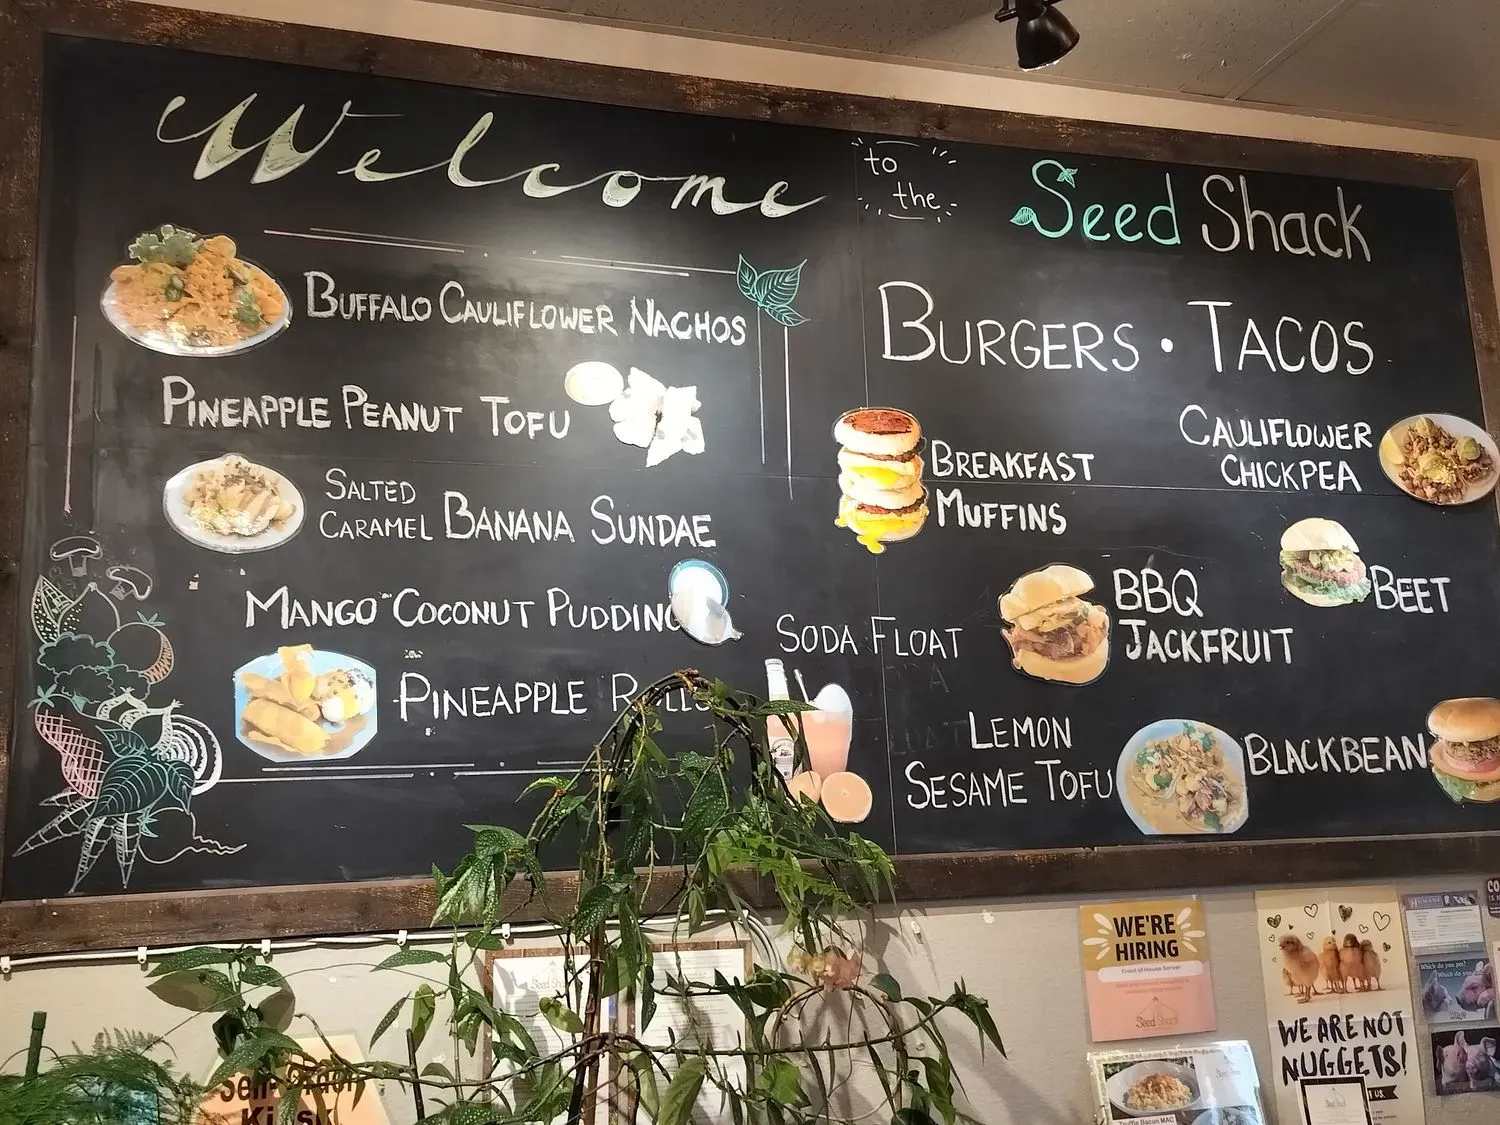 Welcome
to
the
Seed Shack
BUFFALO CAULIFLOWER NACHOS
PINEAPPLE PEANUT TOFU
SALTED
CARAMEL BANANA SUNDAE
MANGO COCONUT PUDDING
PINEAPPLE ROLLS
SODA FLOAT
BURGERS • TACOS
BREAKFAST
MUFFINS
CAULIFLOWER
CHICKPEA
BBQ
JACKFRUIT
BEET
LEMON
SESAME TOFU
BLACKBEAN
WE'RE
HIRING
Front of House Server
Seed Shack
WE ARE NOT
NUGGETS!
Which do you pet?
Which do you
Why?
Truffle Bacon MAC
Self-Order
Kiosk
Seed Shack